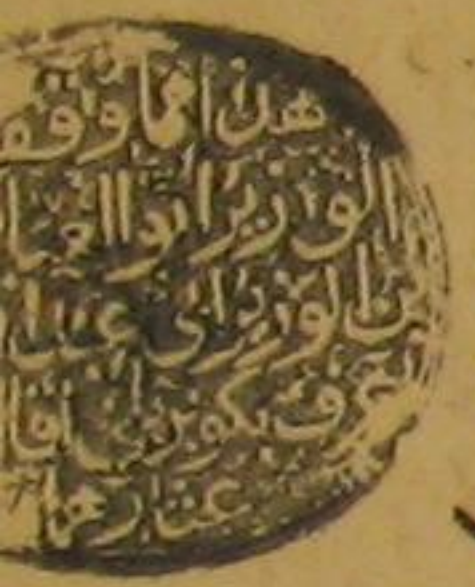 هذا مما وقف
الوزير ابو العبا
بن الوزير ابي عبد ا
عرف بكوپريلي اقا
عثارهما